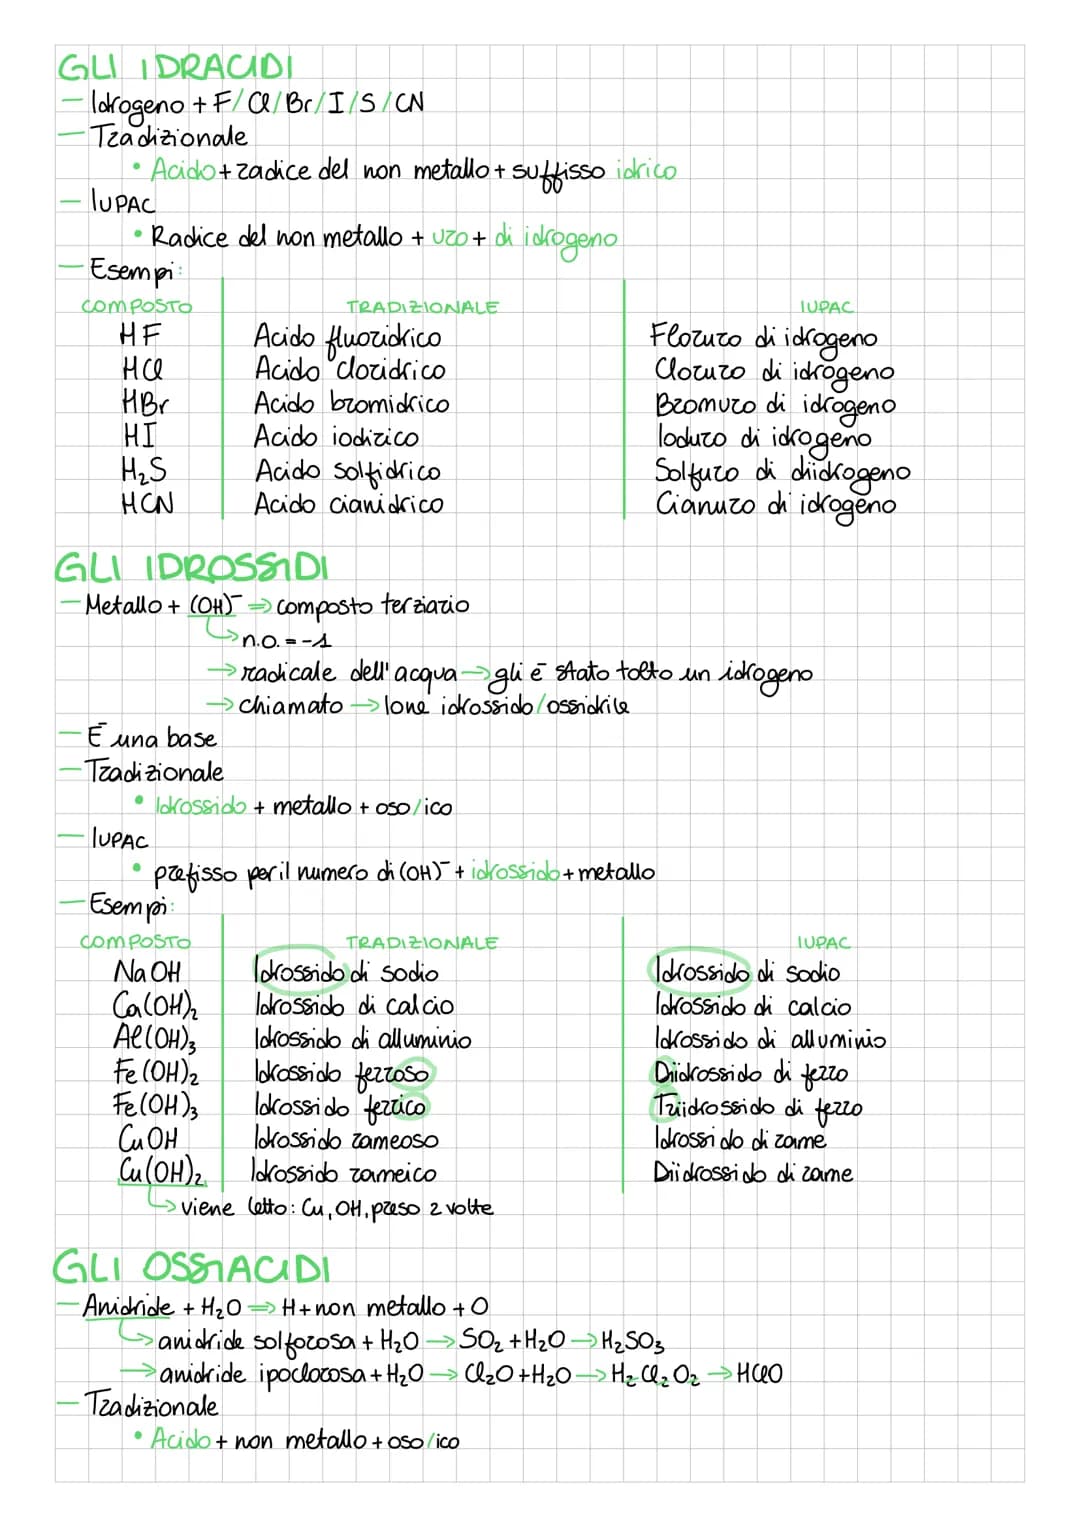 GLI IDRACIDI
— Idrogeno + F/Cl/Br/I/S/CN
— Tradizionale
• Acido + radice del non metallo + suffisso idrico
— IUPAC
• Radice del non metallo + uro + di idrogeno
— Esempi:
COMPOSTO TRADIZIONALE IUPAC
HF Acido fluoridrico Floruro di idrogeno
HCl Acido cloridrico Cloruro di idrogeno
HBr Acido bromidrico Bromuro di idrogeno
HI Acido iodirico Ioduro di idrogeno
H₂S Acido solfidrico Solfuro di diidrogeno
HCN Acido cianidrico Cianuro di idrogeno
GLI IDROSSIDI
— Metallo + (OH)⁻ ⇒ composto terziario
↳ n.o. = -1
→ radicale dell'acqua → gli è stato tolto un idrogeno
→ chiamato → Ione idrossido/ossidrile
— È una base
— Tradizionale
• Idrossido + metallo + oso/ico
— IUPAC
• prefisso per il numero di (OH)⁻ + idrossido + metallo
— Esempi:
COMPOSTO TRADIZIONALE IUPAC
NaOH Idrossido di sodio Idrossido di sodio
Ca(OH)₂ Idrossido di calcio Idrossido di calcio
Al(OH)₃ Idrossido di alluminio Idrossido di alluminio
Fe(OH)₂ Idrossido ferroso Diidrossido di ferro
Fe(OH)₃ Idrossido ferrico Triidrossido di ferro
CuOH Idrossido rameoso Idrossido di rame
Cu(OH)₂ Idrossido rameico Diidrossido di rame
↳ viene letto: Cu, OH, preso 2 volte
GLI OSSIACIDI
— Anidride + H₂O ⇒ H + non metallo + O
↳ anidride solforosa + H₂O → SO₂ + H₂O → H₂SO₃
→ anidride ipoclorosa + H₂O → Cl₂O + H₂O → H₂Cl₂O₂ → HClO
— Tradizionale
• Acido + non metallo + oso/ico